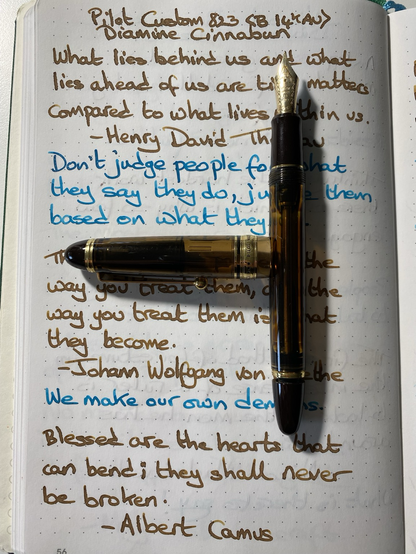 Pilot Custom 823 <B 14k Au>
Diamine Cinnabun
What lies behind us and what
lies ahead of us are matters
compared to what lives us.
- Henry David
Don't judge people what
they say they do, them
based on what they
the
way you treat them, the
way you treat them is
they become.
- Johann Wolfgang von
We make our own
Blessed are the hearts that
can bend; they shall never
be broken.
- Albert Camus
56